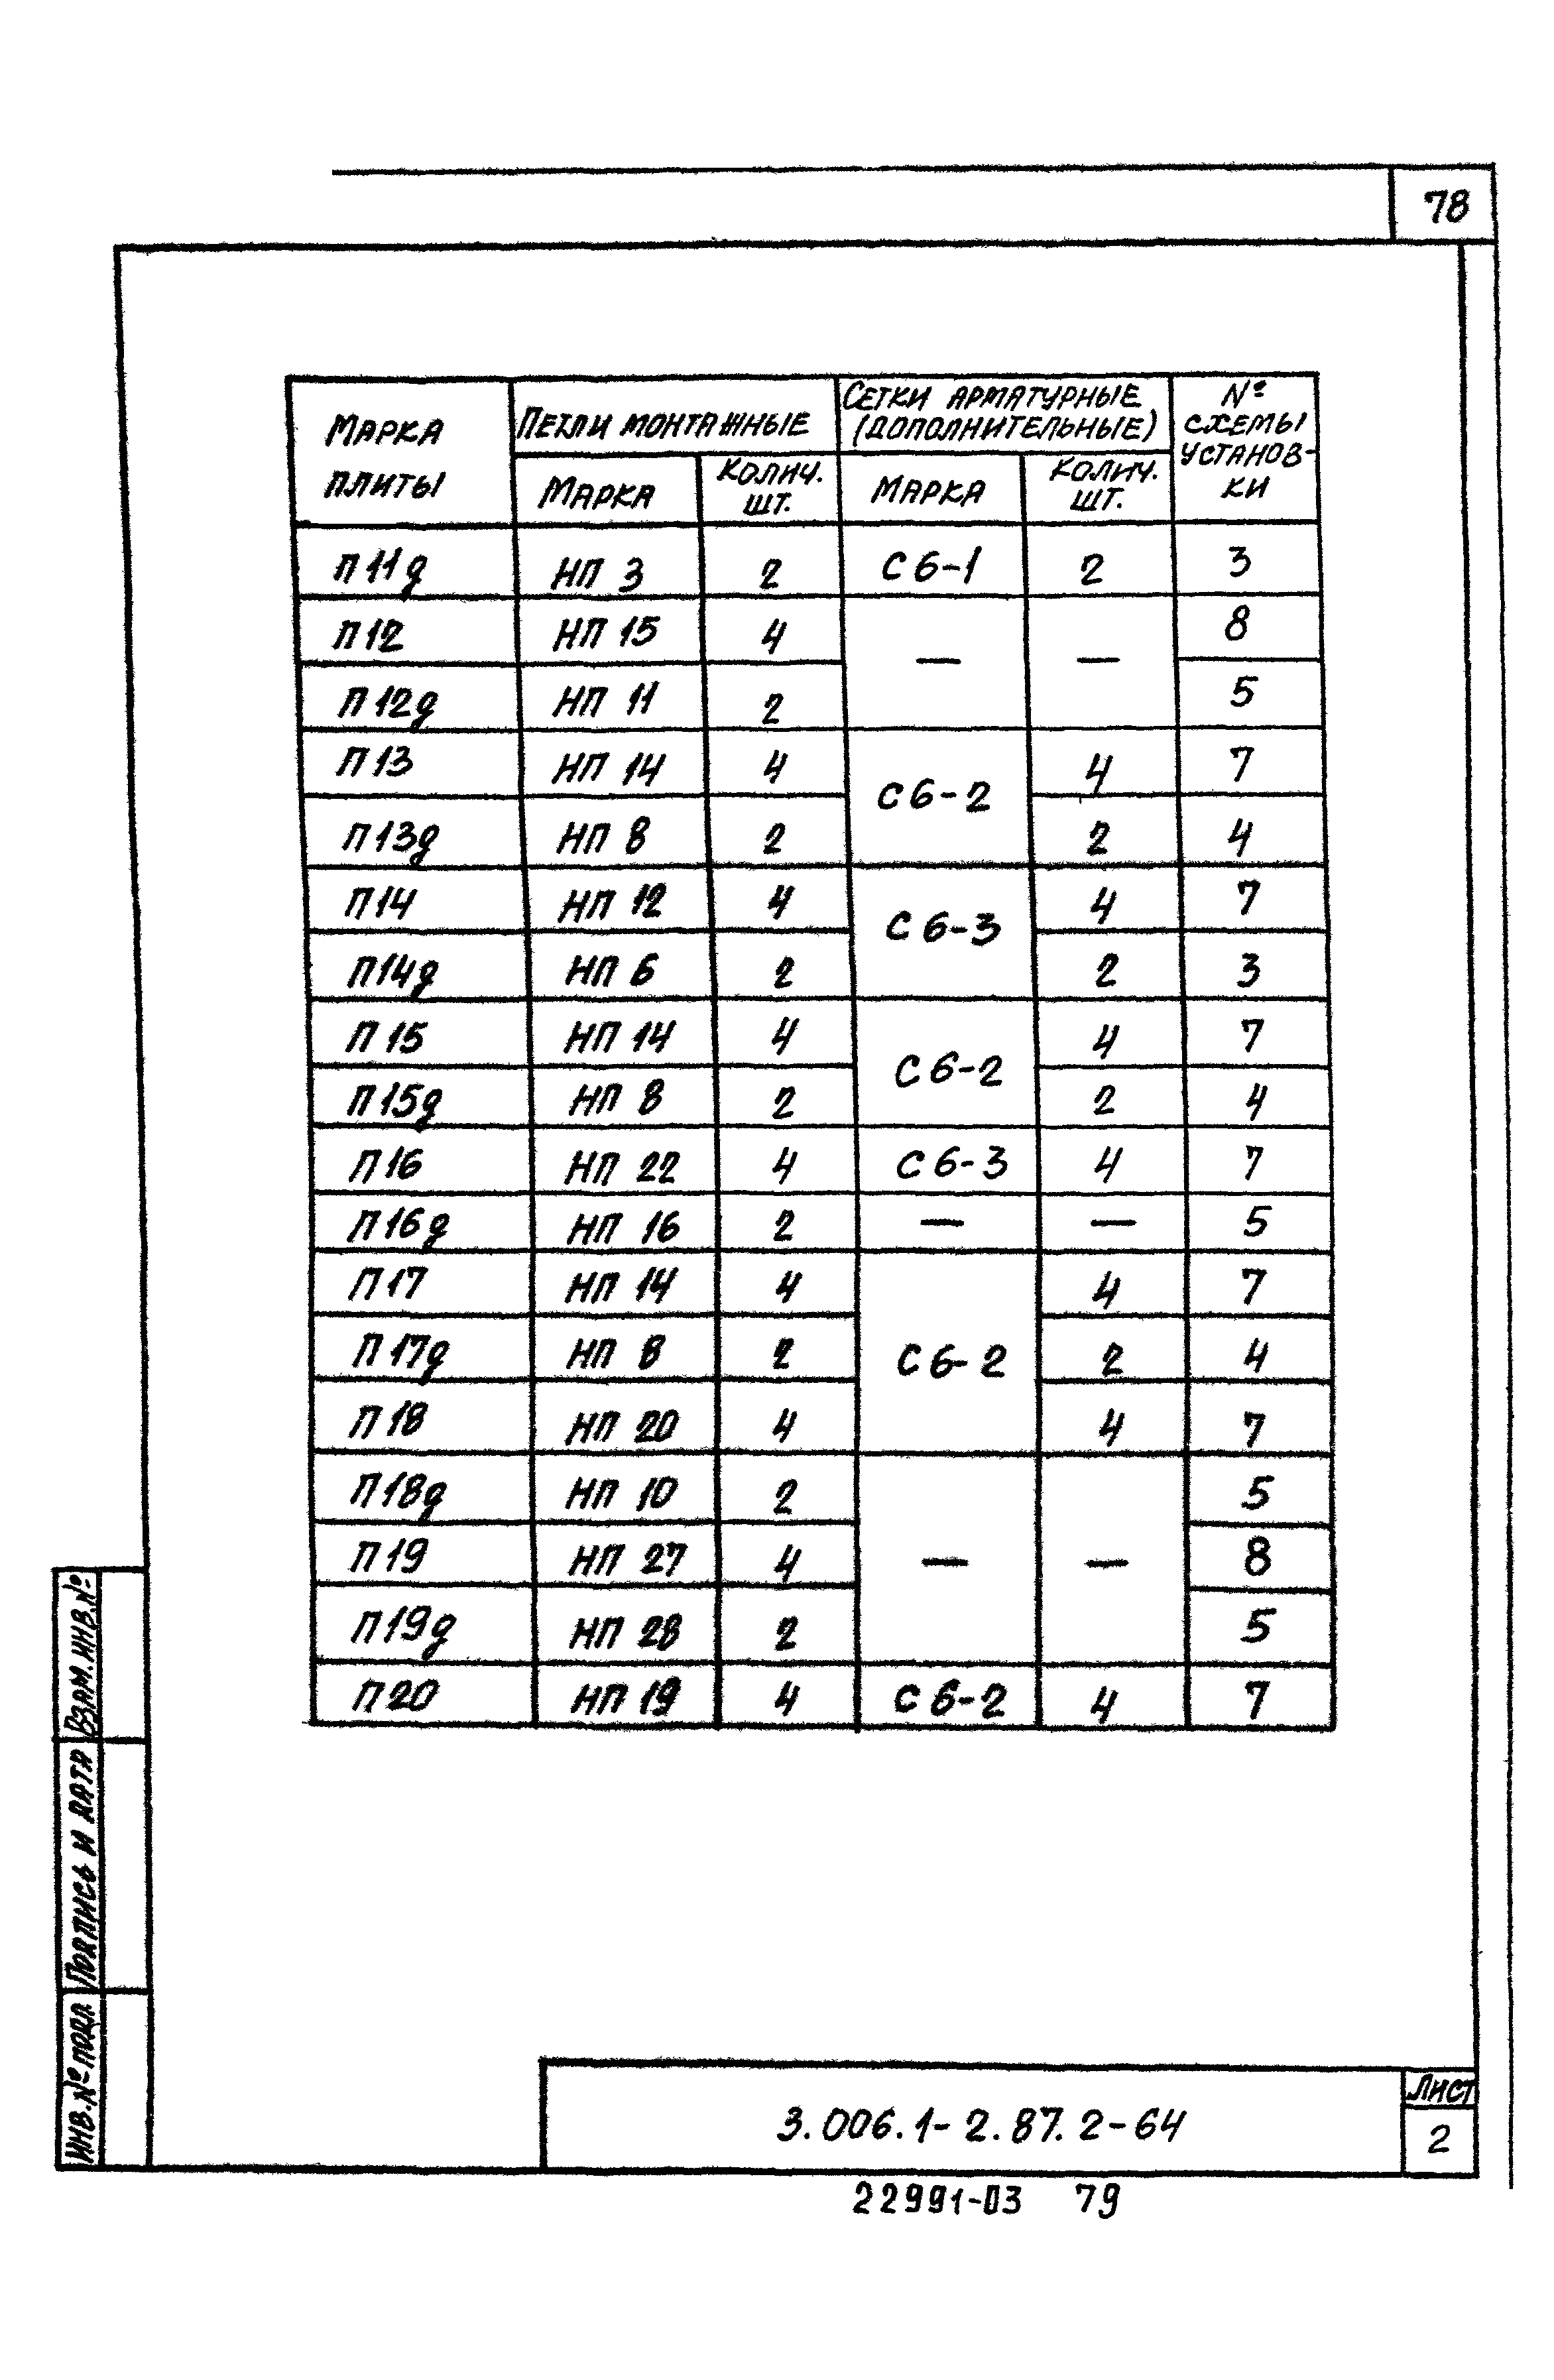 78
Марка плиты | Петли монтажные | Сетки арматурные (дополнительные) | № схемы установ-ки
Марка | Колич. шт. | Марка | Колич. шт.
П11д | НП 3 | 2 | С6-1 | 2 | 3
П12 | НП 15 | 4 | — | — | 8
П12д | НП 11 | 2 | 5
П13 | НП 14 | 4 | С6-2 | 4 | 7
П13д | НП 8 | 2 | 2 | 4
П14 | НП 12 | 4 | С6-3 | 4 | 7
П14д | НП 6 | 2 | 2 | 3
П15 | НП 14 | 4 | С6-2 | 4 | 7
П15д | НП 8 | 2 | 2 | 4
П16 | НП 22 | 4 | С6-3 | 4 | 7
П16д | НП 16 | 2 | — | — | 5
П17 | НП 14 | 4 | С6-2 | 4 | 7
П17д | НП 8 | 2 | 2 | 4
П18 | НП 20 | 4 | 4 | 7
П18д | НП 10 | 2 | — | — | 5
П19 | НП 27 | 4 | 8
П19д | НП 28 | 2 | 5
П20 | НП 19 | 4 | С6-2 | 4 | 7
Взам. инв. №
Подпись и дата
Инв. № подл
3.006.1-2.87.2-64
Лист
2
22991-03 79